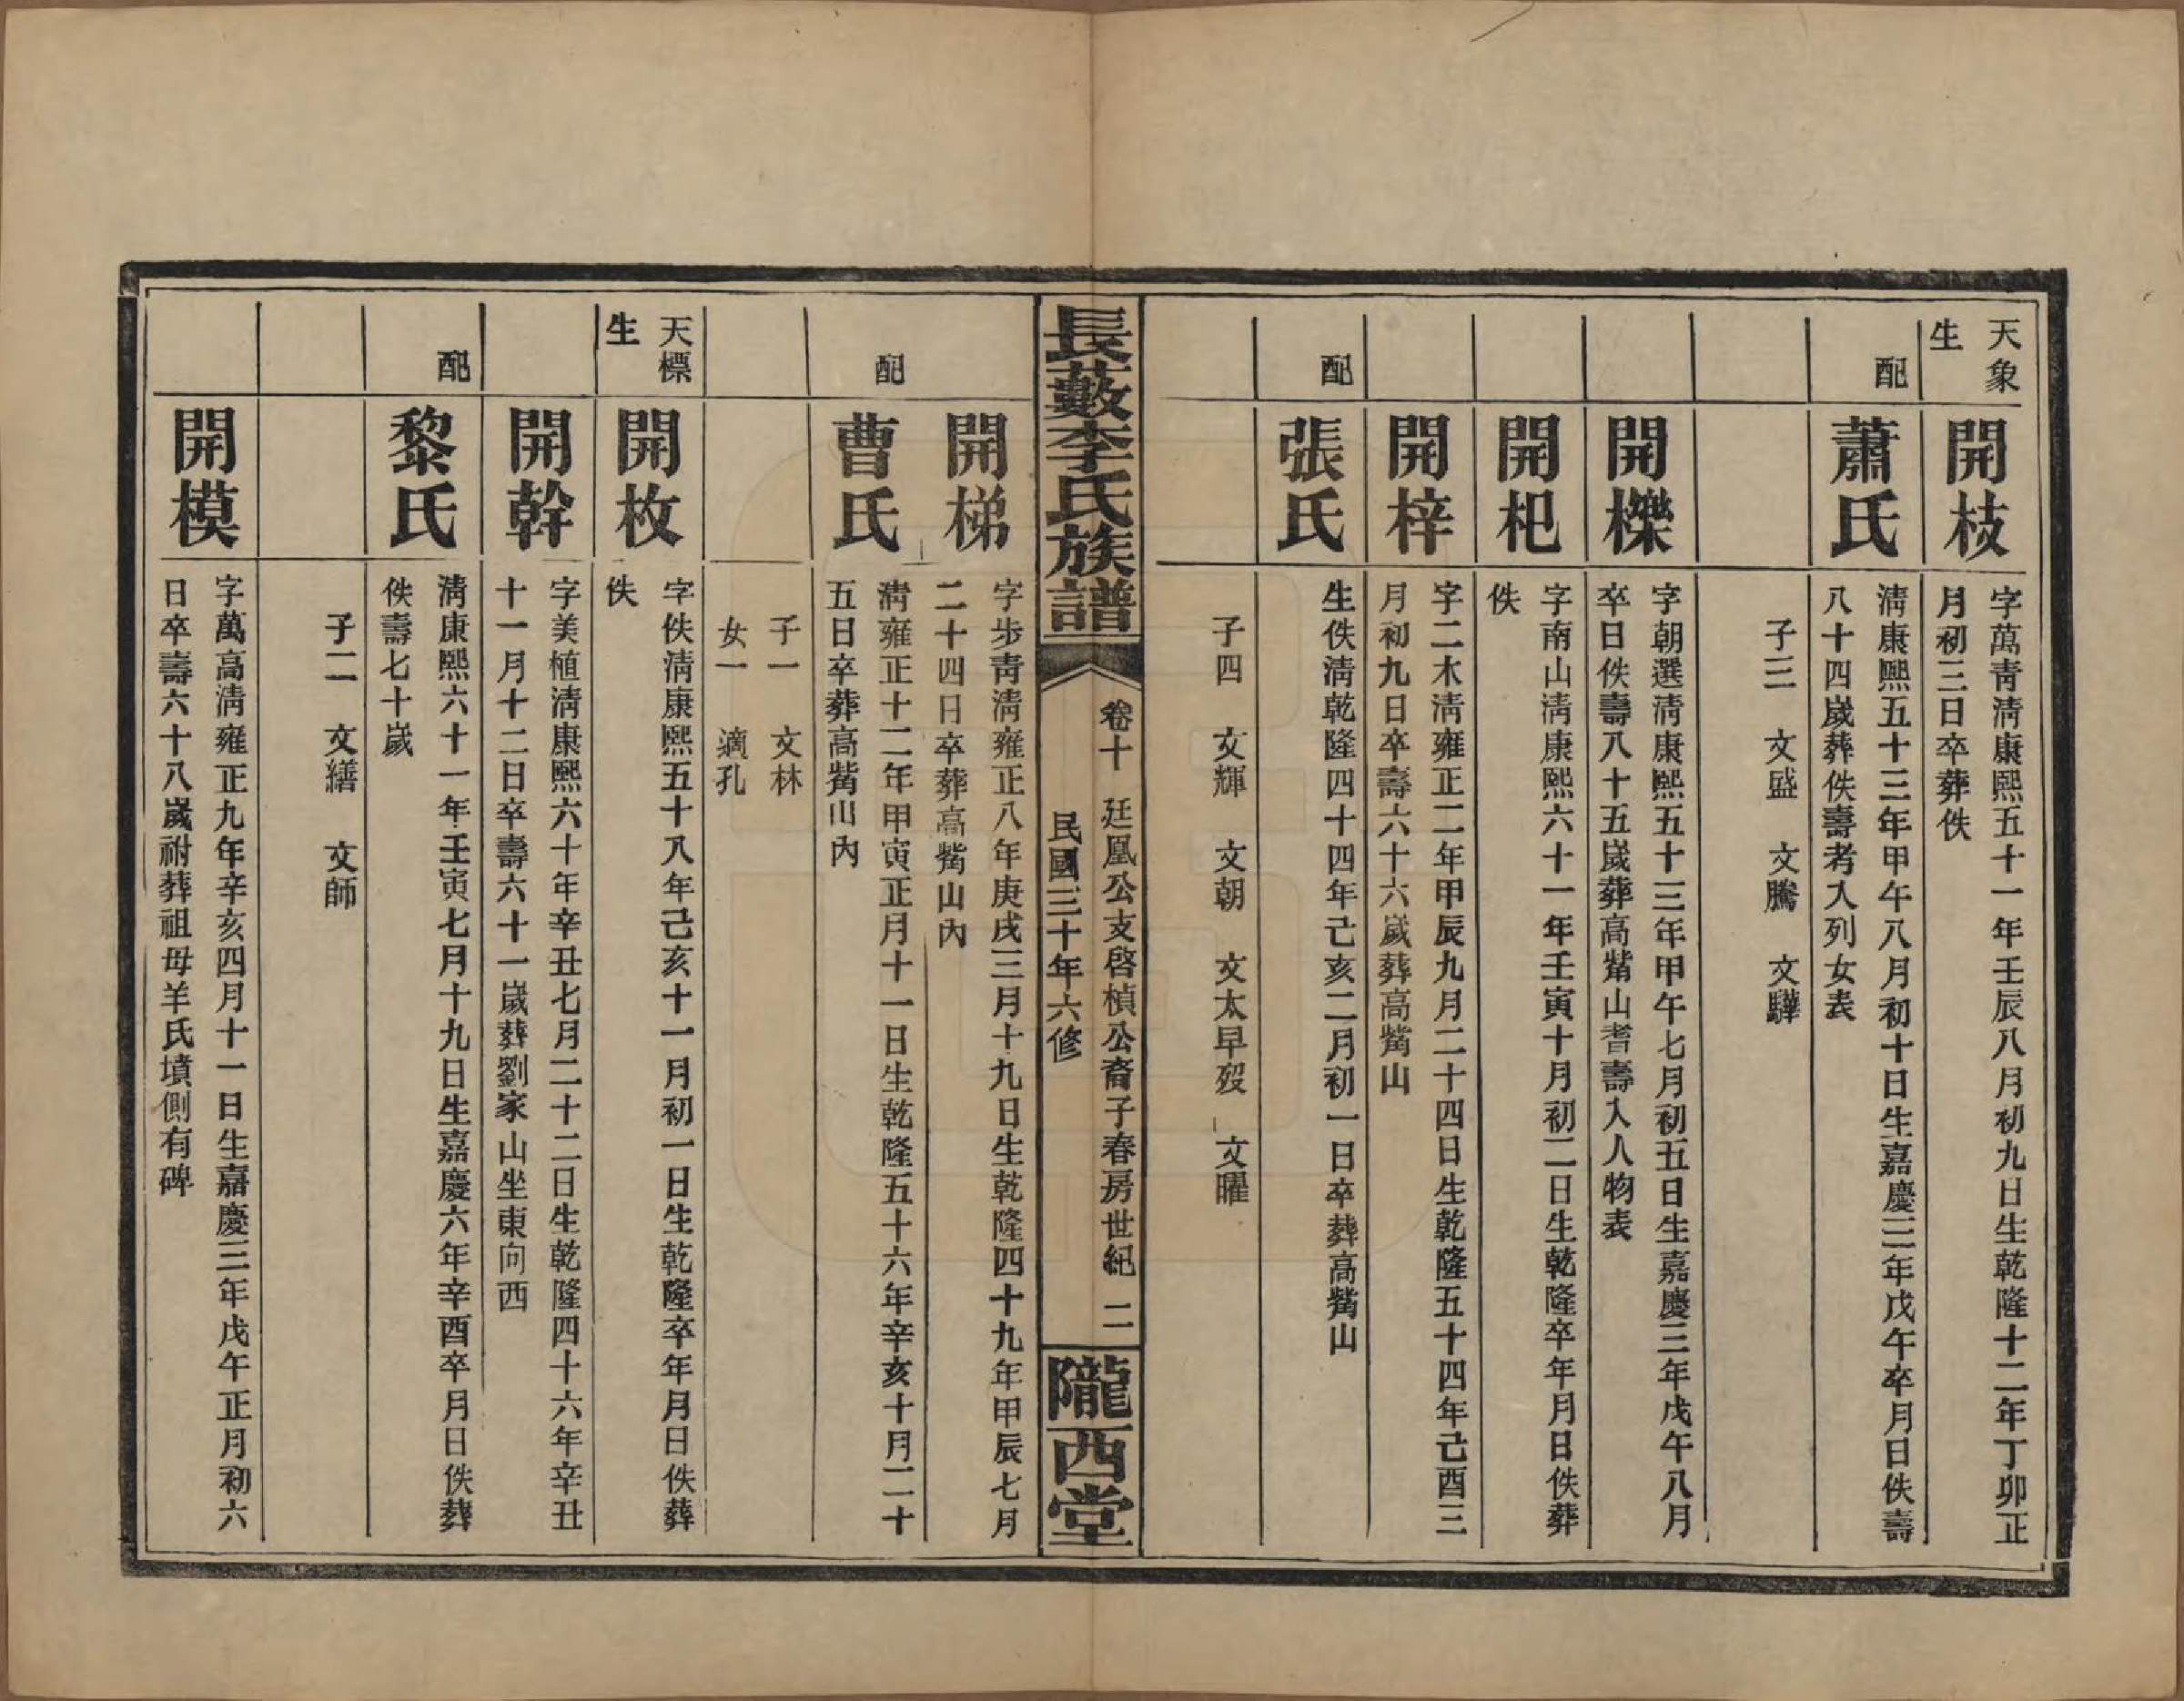 天象
生
開枝
字萬青清康熙五十一年壬辰八月初九日生乾隆十二年丁卯正
月初三日卒葬佚
配
蕭氏
清康熙五十三年甲午八月初十日生嘉慶三年戊午卒月日佚壽
八十四歲葬佚壽考入列女表
子三 文盛 文騰 文驊
開櫟
字朝選清康熙五十三年甲午七月初五日生嘉慶三年戊午八月
卒日佚壽八十五歲葬高觜山耆壽入人物表
開杞
字南山清康熙六十一年壬寅十月初二日生乾隆卒年月日佚葬
佚
開梓
字二木清雍正二年甲辰九月二十四日生乾隆五十四年己酉三
月初九日卒壽六十六歲葬高觜山
配
張氏
生佚清乾隆四十四年己亥二月初一日卒葬高觜山
子四 文輝 文朝 文太早歿 文曜
長藪李氏族譜
卷十 廷凰公支啓楨公裔子春房世紀 二
民國三十年六修
隴西堂
開梯
字步青清雍正八年庚戌三月十九日生乾隆四十九年甲辰七月
二十四日卒葬高觜山內
配
曹氏
清雍正十二年甲寅正月十一日生乾隆五十六年辛亥十月二十
五日卒葬高觜山內
子一 文林
女一 適孔
天標
生
開枚
字佚清康熙五十八年己亥十一月初一日生乾隆卒年月日佚葬
佚
開幹
字美植清康熙六十年辛丑七月二十二日生乾隆四十六年辛丑
十一月十二日卒壽六十一歲葬劉家山坐東向西
配
黎氏
清康熙六十一年壬寅七月十九日生嘉慶六年辛酉卒月日佚葬
佚壽七十歲
子二 文繕 文師
開模
字萬高清雍正九年辛亥四月十一日生嘉慶三年戊午正月初六
日卒壽六十八歲祔葬祖母羊氏墳側有碑